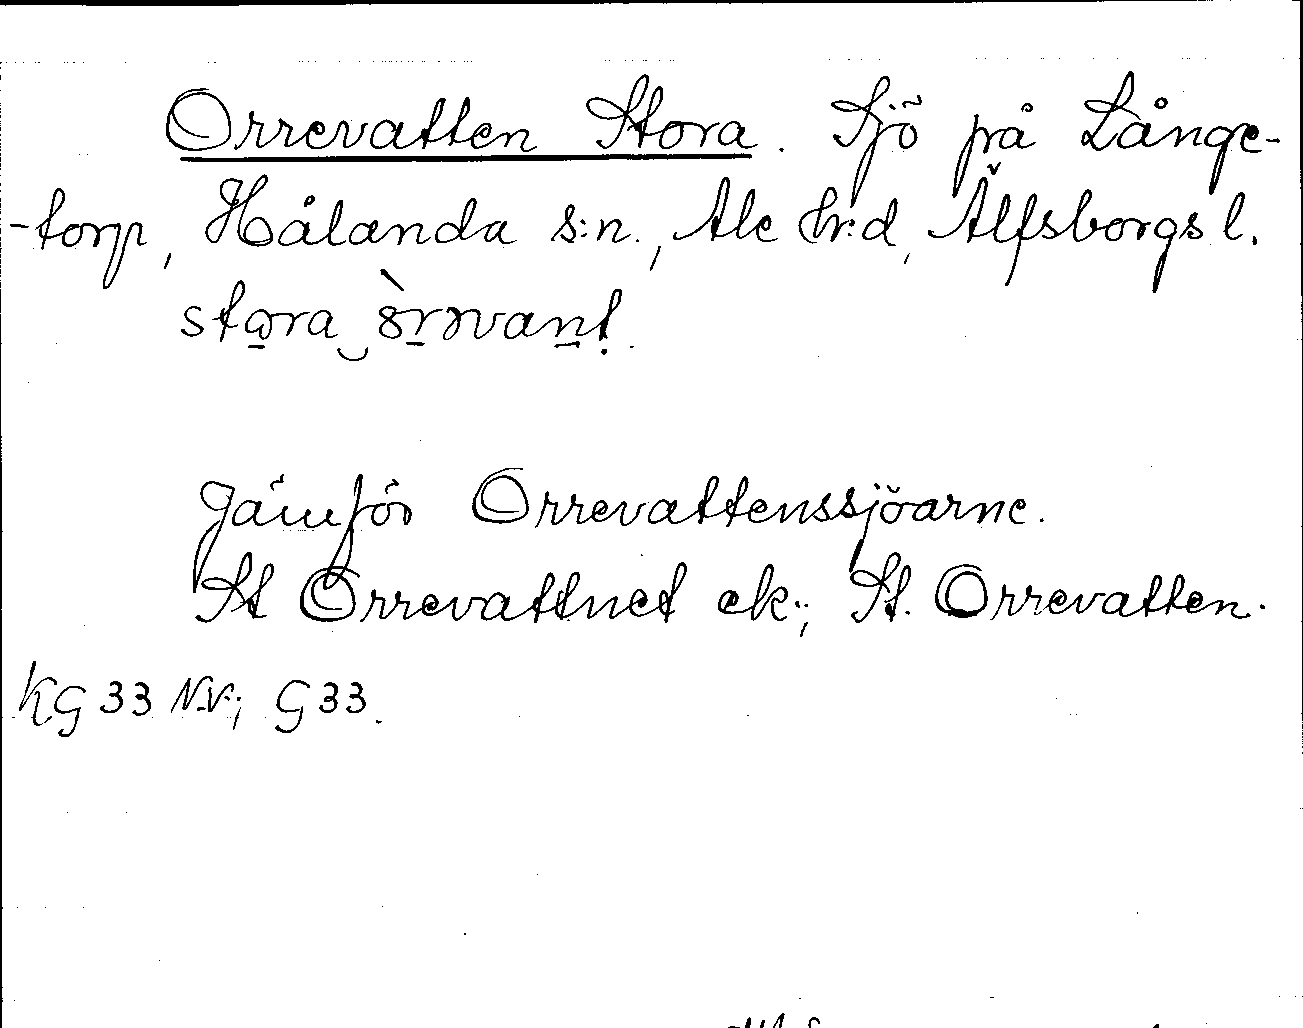 Orrevatten Stora. Sjö på Långe-
-torp, Hålanda s:n., Ale hr:d, Älfsborgs l.
stora‿òrəvant.
Jämför Orrevattenssjöarne.
St Orrevattnet ek.; St. Orrevatten.
KG 33 N.V.; G 33.